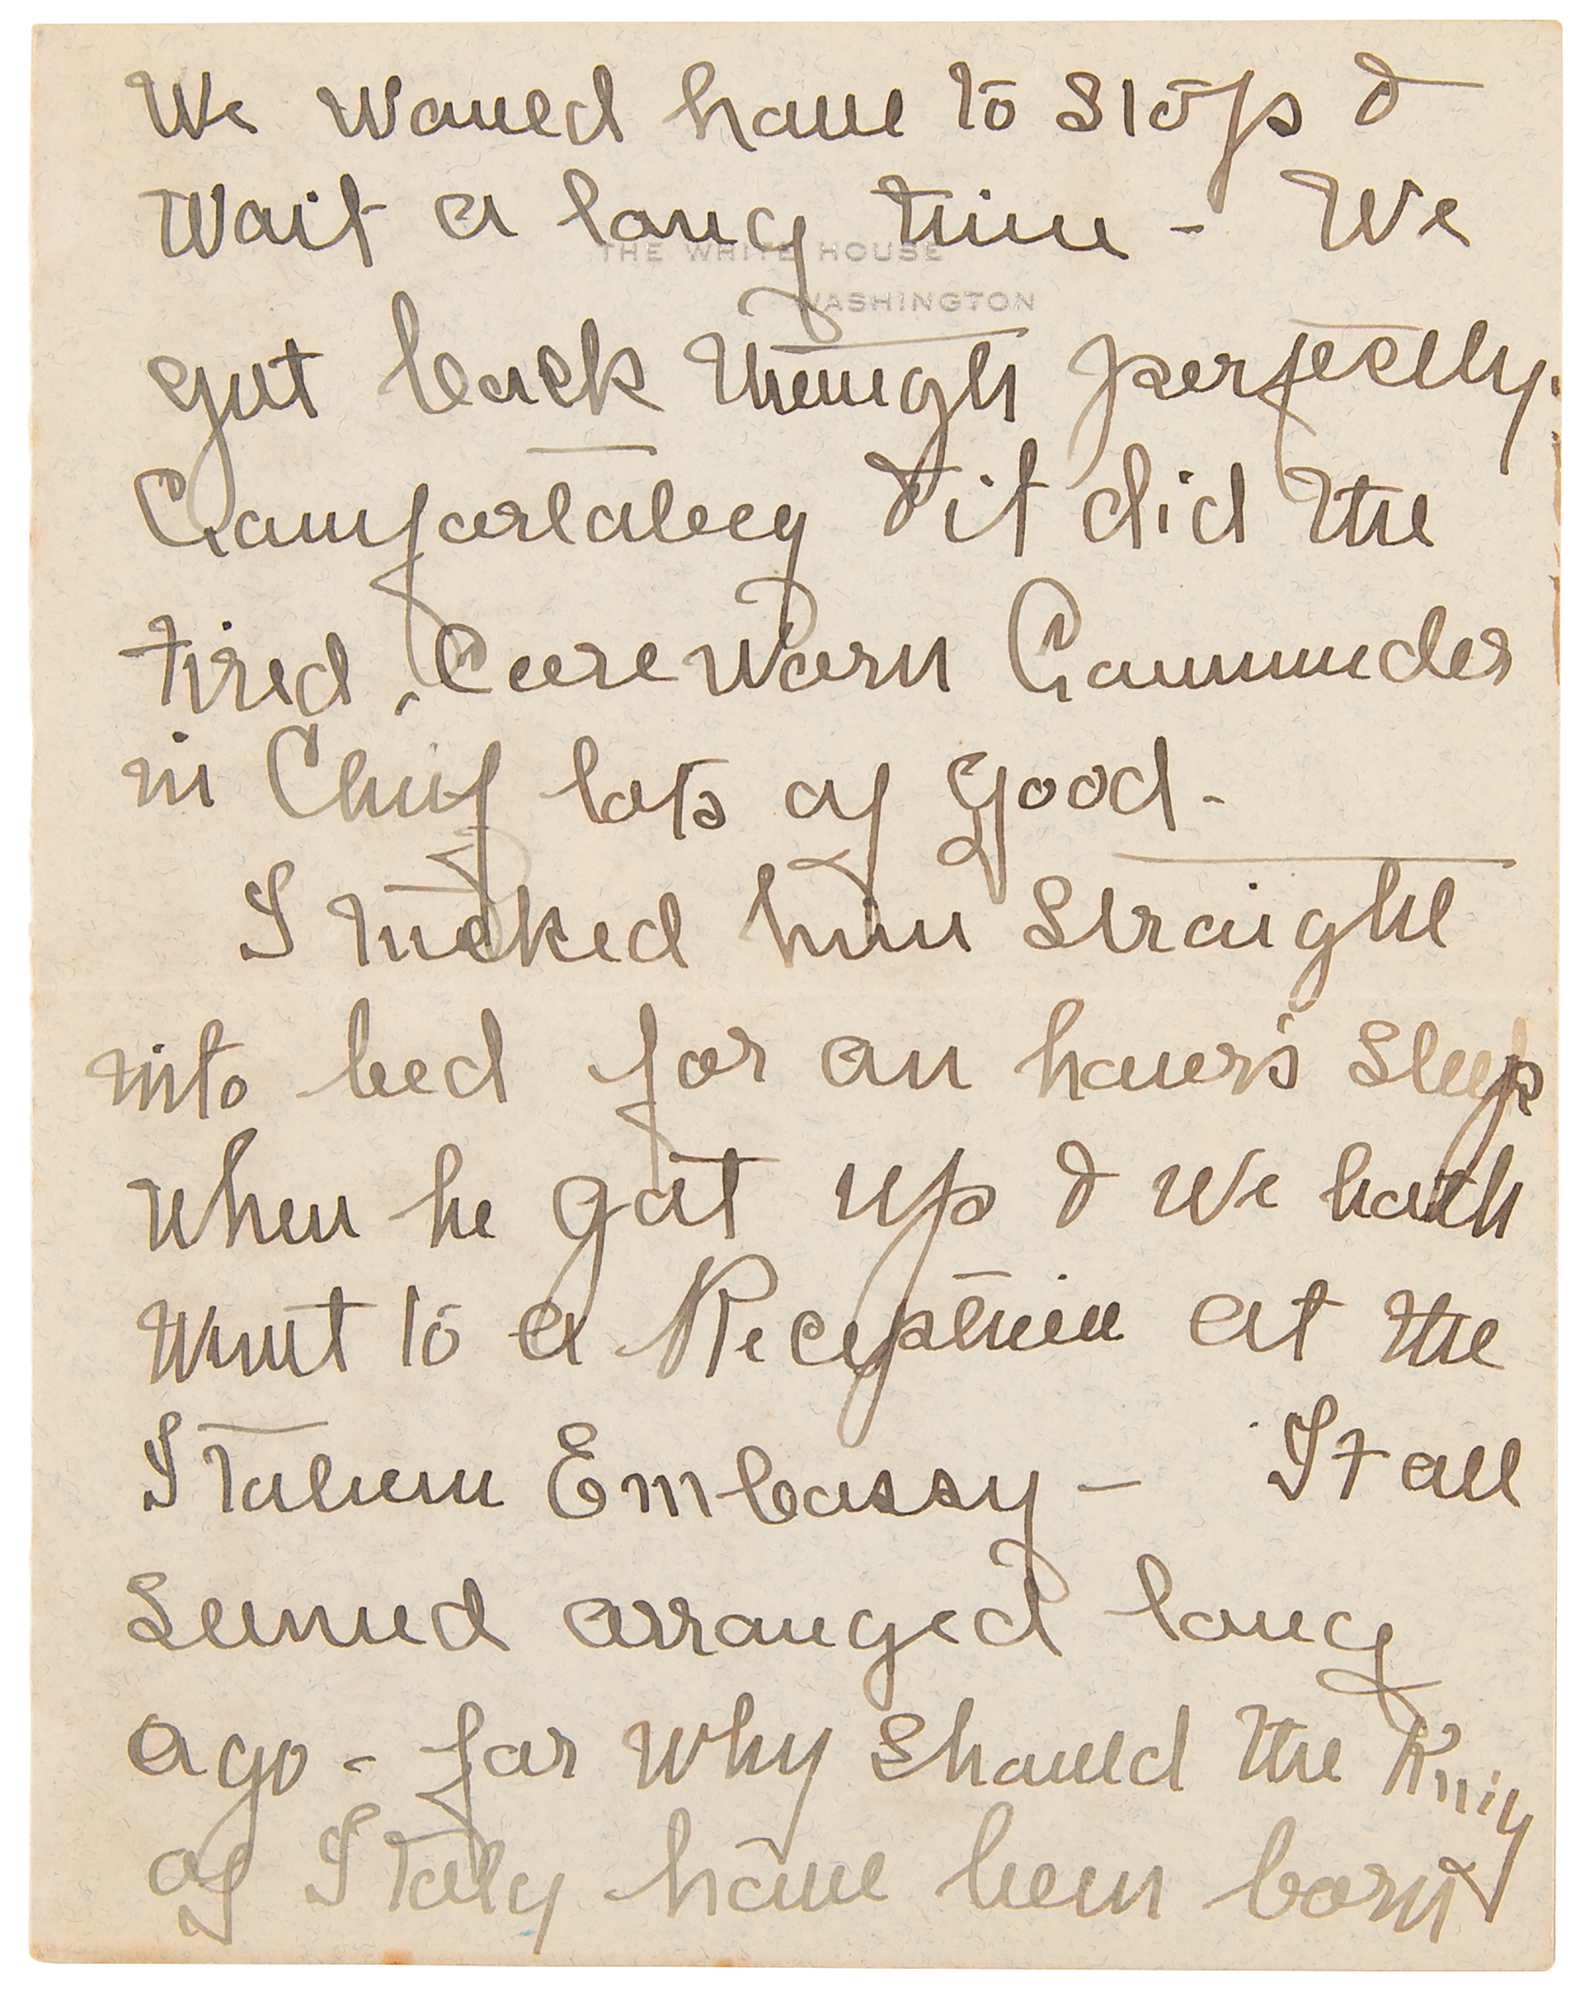 We would have to stop &
wait a long time - We
THE WHITE HOUSE
WASHINGTON
got back though perfectly
comfortably & it did the
tired, careworn Commander
in Chief lots of good -
I tucked him straight
into bed for an hour's sleep
when he got up & we both
went to a Reception at the
Italian Embassy - It all
seemed arranged long
ago - for why should the King
of Italy have been born